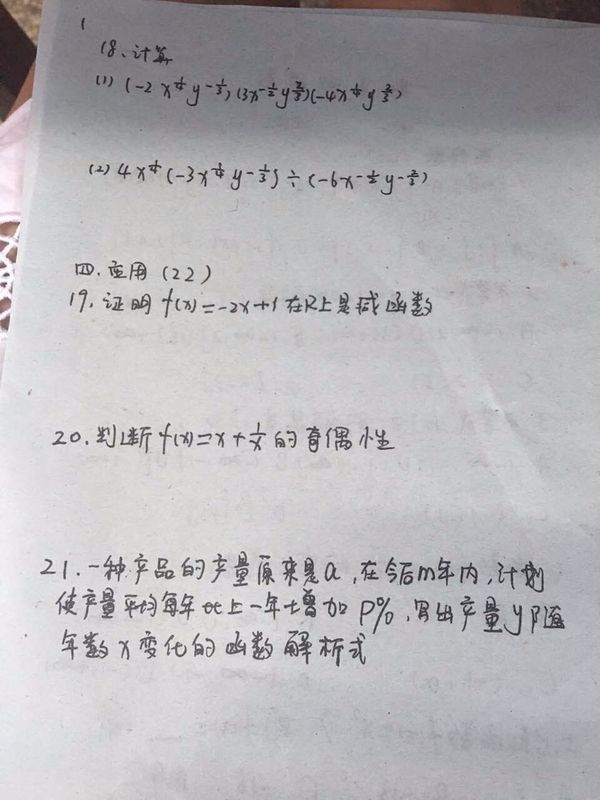 18、计算
(1) (-2x^{1/4}y^{-1/3})(3x^{-1/2}y^{2/3})(-4x^{1/4}y^{2/3})
(2) 4x^{1/4}(-3x^{1/4}y^{-1/3})÷(-6x^{-1/2}y^{-2/3})
四、应用(22)
19、证明f(x)=-2x+1在R上是减函数
20.判断f(x)=x+1/x的奇偶性
21.一种产品的产量原来是a,在今后m年内,计划
使产量平均每年比上一年增加P%,写出产量y随
年数x变化的函数解析式